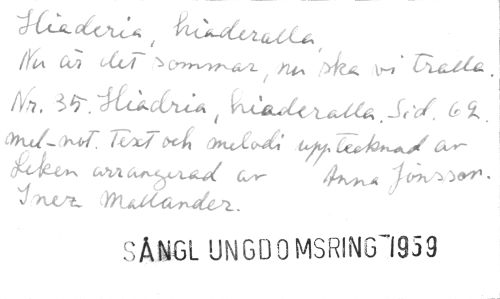 Hiaderia, hiaderalla,
Nu är det sommar, nu ska vi tralla.
Nr. 35. Hiadria, hiaderalla. Sid. 62.
mel-not. Text och melodi upptecknad av
Leken arrangerad av Anna Jönsson.
Inez Mallander.
SÅNGLUNGDOMSRING 1959